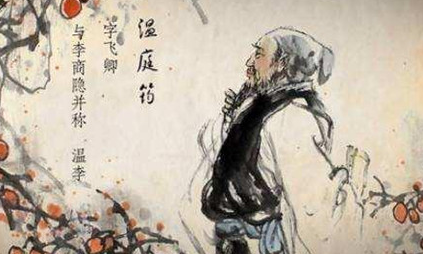 温庭筠
字飞卿
与李商隐并称 温李